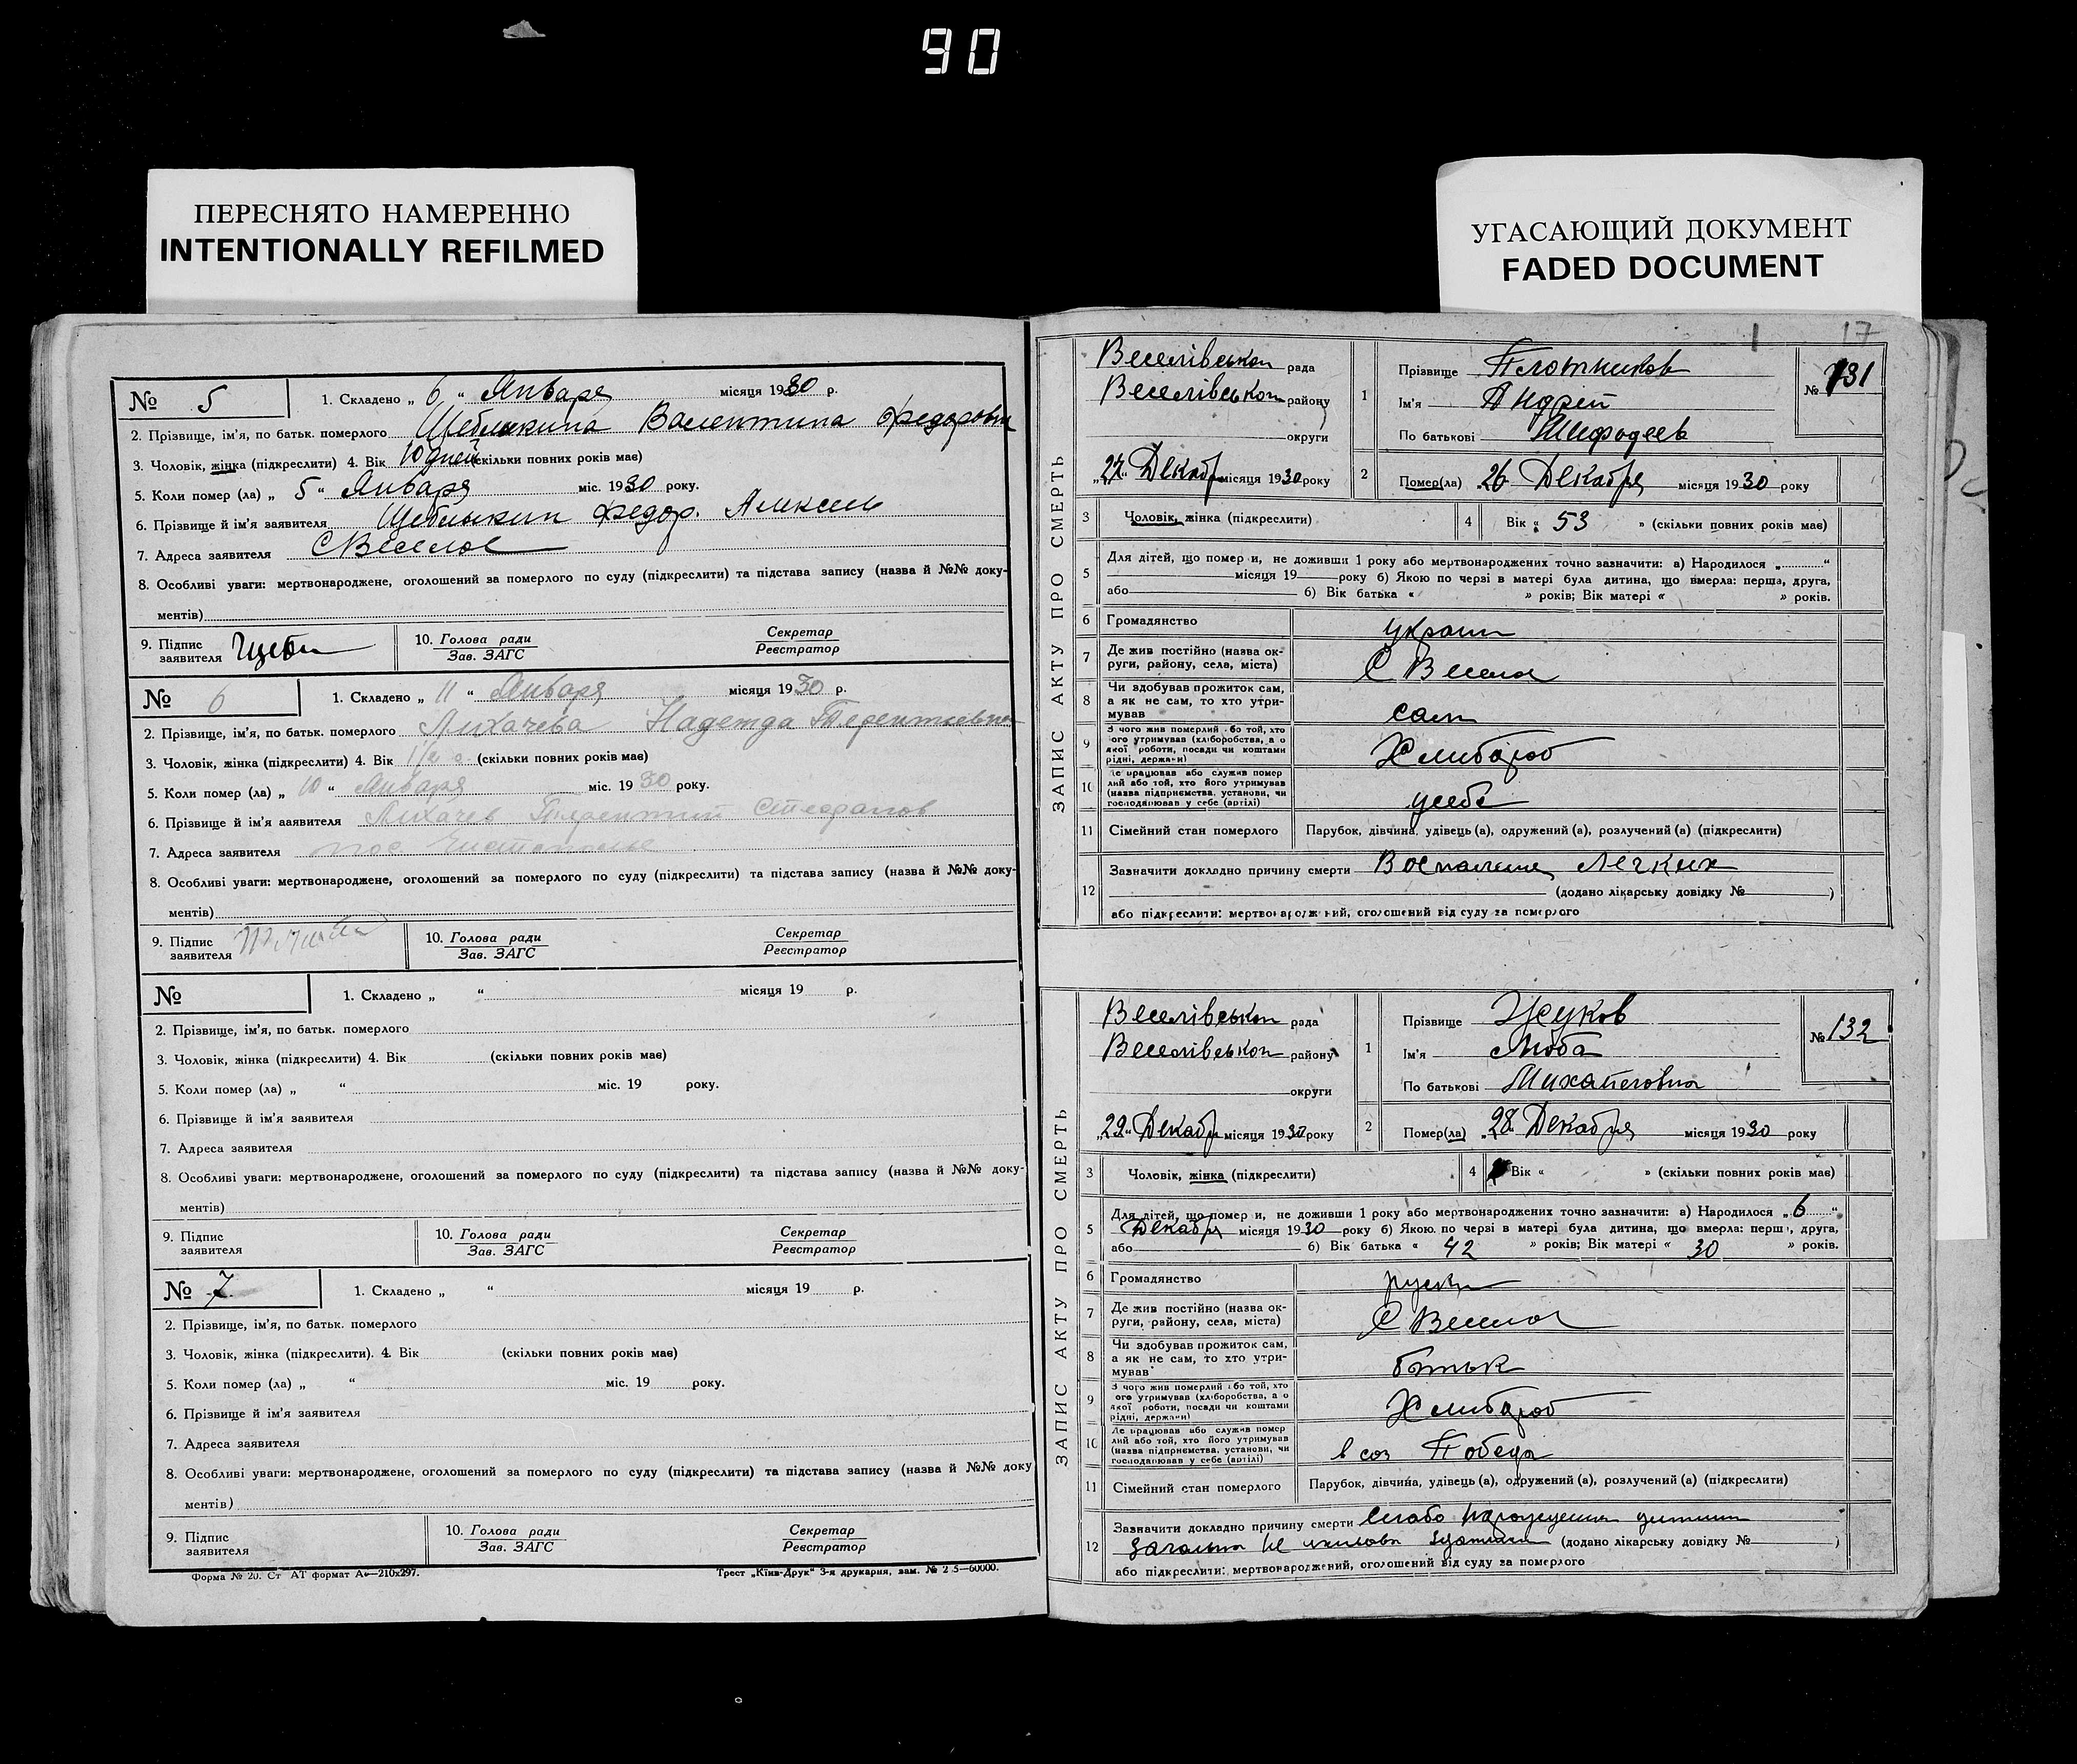 90
ПЕРЕСНЯТО НАМЕРЕННО
INTENTIONALLY REFILMED
УГАСАЮЩИЙ ДОКУМЕНТ
FADED DOCUMENT
№ 5
1. Складено „ 6 “ Января місяця 1930 р.
2. Прізвище, ім'я, по батьк. померлого Щеблыкина Валентина Федоровна
3. Чоловік, жінка (підкреслити) 4. Вік 10 дней (скільки повних років має)
5. Коли помер (ла) „ 5 “ Января міс. 1930 року.
6. Прізвище й ім'я заявителя Щеблыкин Федор. Алексеев
7. Адреса заявителя с Веселое
8. Особливі уваги: мертвонароджене, оголошений за померлого по суду (підкреслити) та підстава запису (назва й №№ доку-
ментів)
9. Підпис заявителя
10. Голова ради
Зав. ЗАГС
Секретар
Реєстратор
№ 6
1. Складено „ 11 “ Января місяця 1930 р.
2. Прізвище, ім'я, по батьк. померлого Лихачева Надежда Терентиевна
3. Чоловік, жінка (підкреслити) 4. Вік (скільки повних років має)
5. Коли помер (ла) „ 10 “ Января міс. 1930 року.
6. Прізвище й ім'я заявителя Лихачев Терентий Стефанов
7. Адреса заявителя пос Чистополье
8. Особливі уваги: мертвонароджене, оголошений за померлого по суду (підкреслити) та підстава запису (назва й №№ доку-
ментів)
9. Підпис заявителя
10. Голова ради
Зав. ЗАГС
Секретар
Реєстратор
№
1. Складено „ “ місяця 19 р.
2. Прізвище, ім'я, по батьк. померлого
3. Чоловік, жінка (підкреслити) 4. Вік (скільки повних років має)
5. Коли помер (ла) „ “ міс. 19 року.
6. Прізвище й ім'я заявителя
7. Адреса заявителя
8. Особливі уваги: мертвонароджене, оголошений за померлого по суду (підкреслити) та підстава запису (назва й №№ доку-
ментів)
9. Підпис заявителя
10. Голова ради
Зав. ЗАГС
Секретар
Реєстратор
№ 7
1. Складено „ “ місяця 19 р.
2. Прізвище, ім'я, по батьк. померлого
3. Чоловік, жінка (підкреслити). 4. Вік (скільки повних років має)
5. Коли помер (ла) „ “ міс. 19 року.
6. Прізвище й ім'я заявителя
7. Адреса заявителя
8. Особливі уваги: мертвонароджене, оголошений за померлого по суду (підкреслити) та підстава запису (назва й №№ доку
ментів)
9. Підпис заявителя
10. Голова ради
Зав. ЗАГС
Секретар
Реєстратор
Форма № 20. Ст АТ формат А4—210х297.
Трест „Київ-Друк“ 3-я друкарня, зам. № 2 5—60000.
17
ЗАПИС АКТУ ПРО СМЕРТЬ
Веселівської рада
Веселівської району
округи
„27“ Декабр місяця 1930 року
1 Прізвище Плотников
Ім'я Андрей
По батькові
№ 131
2 Помер(ла) „26 Декабря місяця 1930 року
3 Чоловік, жінка (підкреслити)
4 Вік « 53 » (скільки повних років має)
5 Для дітей, що померли, не доживши 1 року або мертвонароджених точно зазначити: а) Народилося „ “
місяця 19 року б) Якою по черзі в матері була дитина, що вмерла: перша, друга,
або б) Вік батька « » років; Вік матері « » років.
6 Громадянство украин
7 Де жив постійно (назва округи, району, села, міста) с Весело
8 Чи здобував прожиток сам, а як не сам, то хто утримував сам
9 З чого жив померлий або той, хто його утримував (хліборобства, а о якої роботи, посади чи коштами рідні, держави) Хлибароб
10 Де працював або служив померлий або той, хто його утримував (назва підприємства, установи, чи господарював у себе (артілі) усебе
11 Сімейний стан померлого Парубок, дівчина, удівець (а), одружений (а), розлучений (а) (підкреслити)
12 Зазначити докладно причину смерти Воспаление Легких
(додано лікарську довідку № )
або підкреслити: мертвонароджений, оголошений від суду за померлого
ЗАПИС АКТУ ПРО СМЕРТЬ
Веселівської рада
Веселівської району
округи
„29“ Декабр місяця 1930 року
1 Прізвище Жуков
Ім'я Люба
По батькові Михайловна
№ 132
2 Помер(ла) „28“ Декабря місяця 1930 року
3 Чоловік, жінка (підкреслити)
4 Вік « » (скільки повних років має)
5 Для дітей, що померли, не доживши 1 року або мертвонароджених точно зазначити: а) Народилося „ 6 “
Декабря місяця 1930 року б) Якою по черзі в матері була дитина, що вмерла: перша, друга,
або б) Вік батька « 42 » років; Вік матері « 30 » років.
6 Громадянство руски
7 Де жив постійно (назва округи, району, села, міста) с Весело
8 Чи здобував прожиток сам, а як не сам, то хто утримував батьк
9 З чого жив померлий або той, хто його утримував (хліборобства, а о якої роботи, посади чи коштами рідні, держави) Хлибароб
10 Де працював або служив померлий або той, хто його утримував (назва підприємства, установи, чи господарював у себе (артілі) в соз Победа
11 Сімейний стан померлого Парубок, дівчина, удівець (а), одружений (а), розлучений (а) (підкреслити)
12 Зазначити докладно причину смерти слабо
(додано лікарську довідку № )
або підкреслити: мертвонароджений, оголошений від суду за померлого